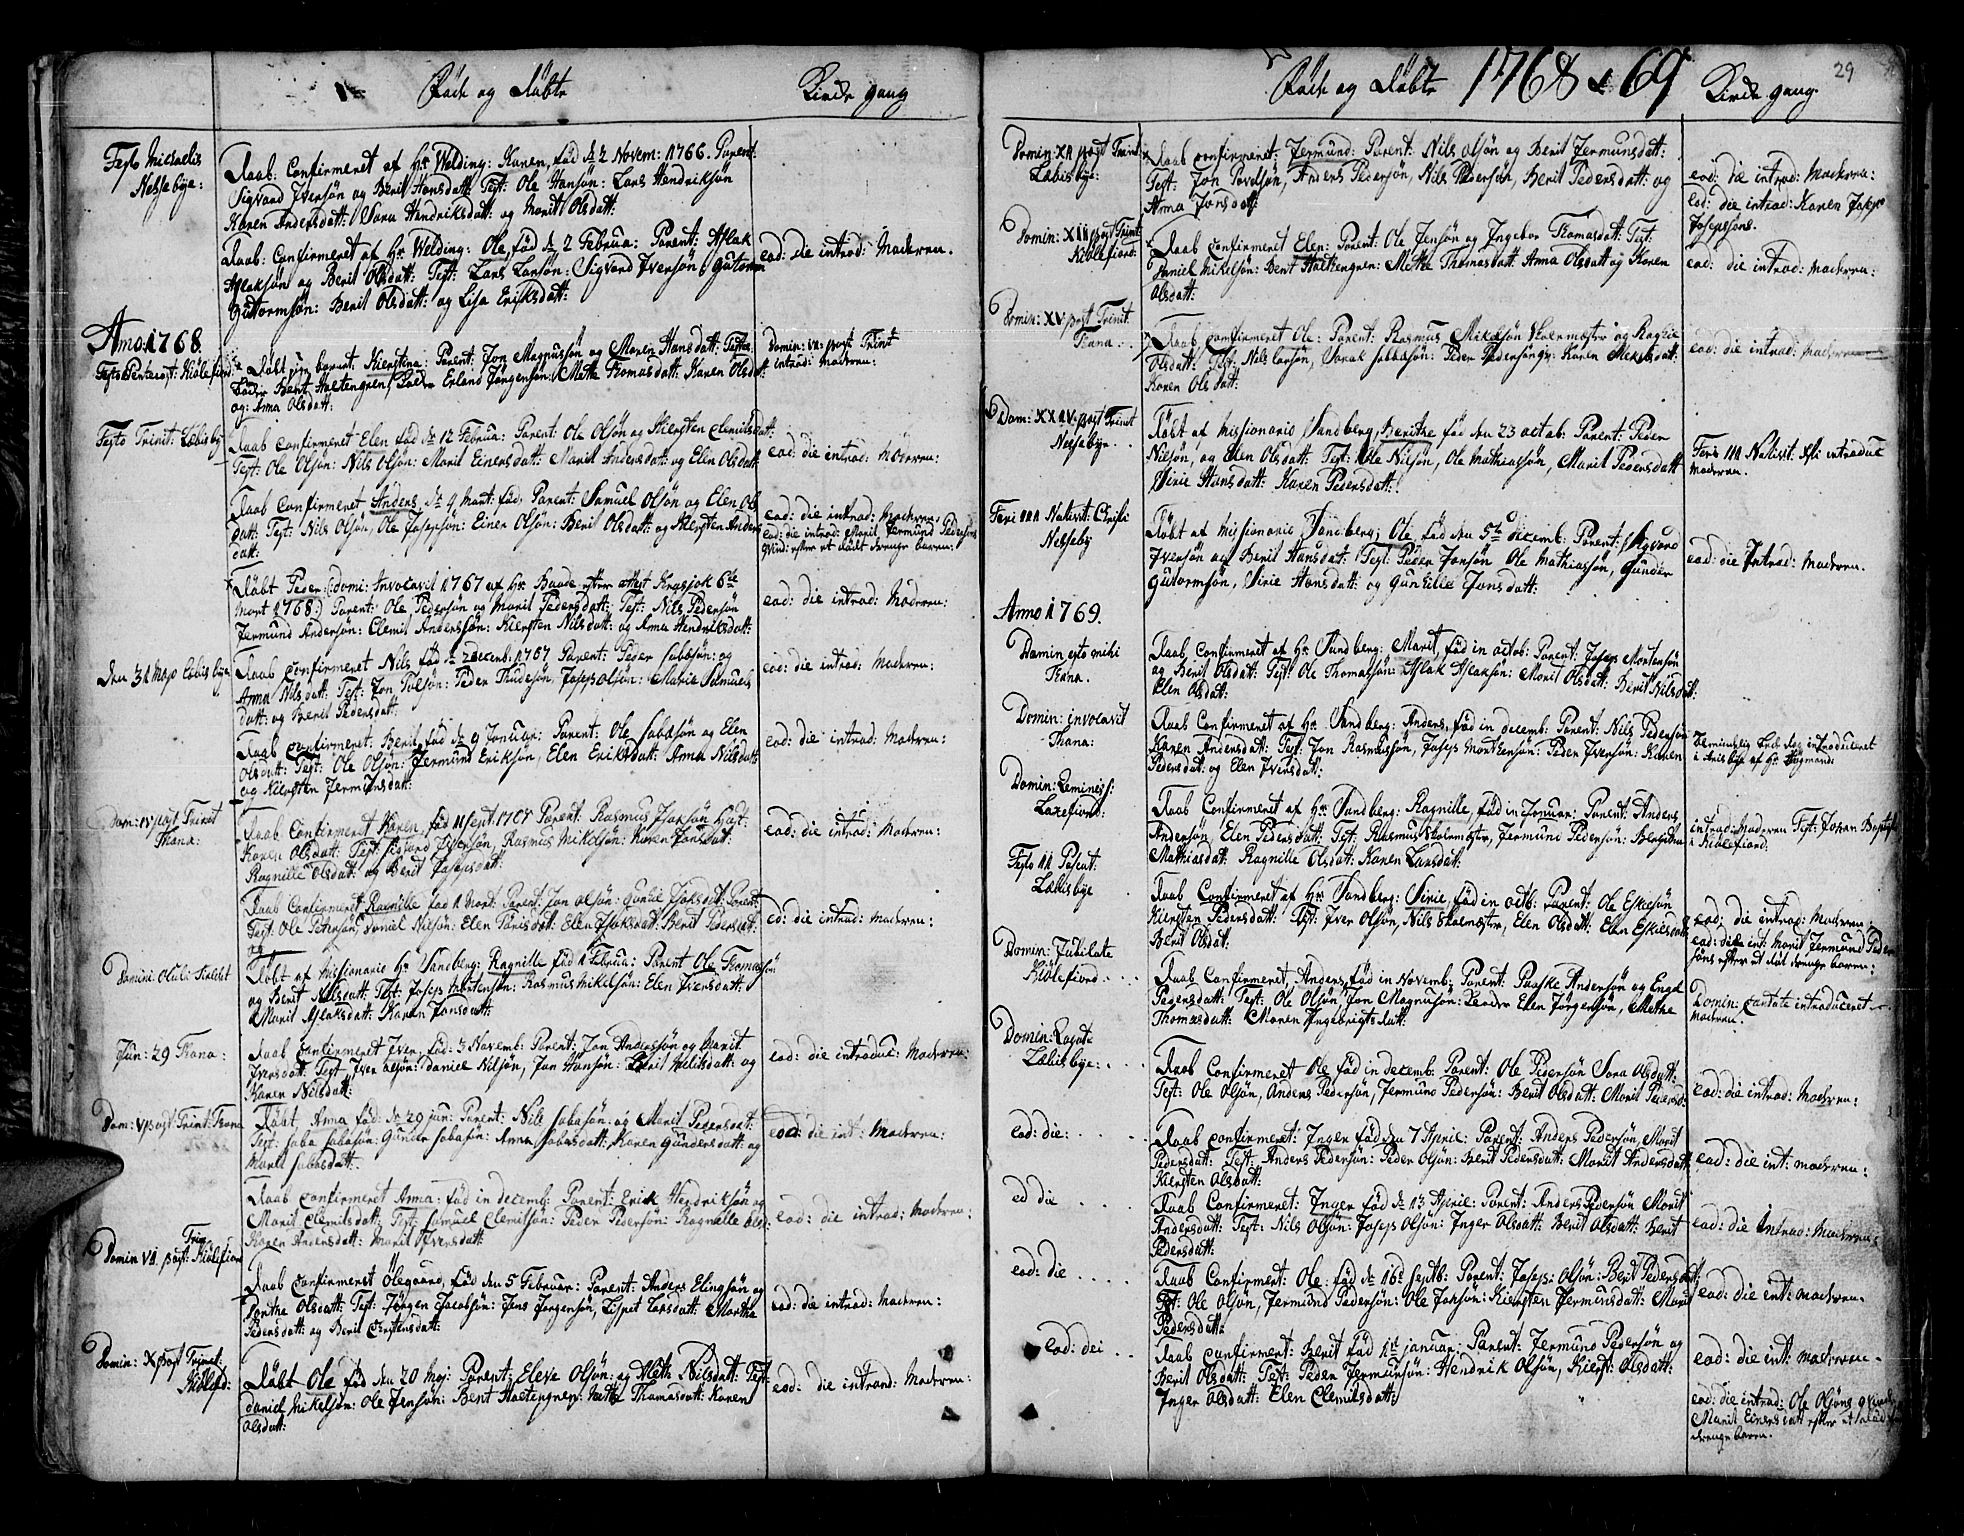 Föde og Döbte
Kirke gang
Festo Michaelis
Nesseby:
Daab: Confirmeret af Hr. Welding: Karen, föd d. 2 Novem: 1766. Parent:
Sigvard Iversön og Berit Hansdatt: Test: Ole Hansön: Lars Hendriksön
Karen Andersdatt: Sara Hendriksdatt: og Marit Olsdatt:
Daab: Confirmeret af Hr. Welding: Ole, föd d. 2 Februa: Parent: Aslak
Aslaksön og Berit Olsdatt: Test: Lars Larsön: Sigvard Iversön: Guttorm
Guttormsön: Berit Olsdatt: og Lisa Eriksdatt:
eod: die introd: Moderen.
Anno 1768
Festo Pentecost: Kiölefiord:
Döbt barnet Kierstina: Parent: Jon Magnusön og Maren Hansdatt: Testes
Bent Haltengren, Erland Jörgensön: Mette Thomasdatt: Karen Olsdatt:
og: Anna Olsdatt:
Domin: VII post Trint
introd: moderen:
Festo Trinit: Lebisby
Daab Confirmeret Elen föd d. 12 Februa: Parent: Ole Olsön og Kiersten Clemitsdatt:
Test: Ole Olsön: Nils Olsön: Marit Einersdatt: Marit Andersdatt: og Elen Olsdatt:
eod: die introd: Möderen:
Daab Confirmeret Anders d. 9 Mart: föd. Parent: Samuel Olsön og Elen Ols
datt: Test: Nils Olsön, Ole Josepsön: Einer Olsön: Berit Olsdatt: og Kiersten Anders
datt:
eod: die introd: Moderen:
eod: die introd: Marit Jermund Pedersöns
Qvind: efter et födt drenge barn:
Döbt Peder: (: Domi: Invocavit 1767 af Hr. Baade efter attest Krasjok 6te
Mart 1768:) Parent: Ole Pedersön og Marit Pedersdatt: Test: Nils Pedersön
Jermund Andersön: Clemit Anderssön: Kiersten Nilsdatt: og Anna Hendriksdatt:
eod: die introd: Moderen:
Den 31 Majo Lebisbye
Daab Confirmeret Nils föd d. 2 decemb: 1767 Parent: Peder Sabasön: og
Anna Nilsdatt: Test: Jon Polsön: Peder Thudesön, Josep Olsön: Marie Samuels
datt: og Berit Pedersdatt:
eod: die introd: Moderen:
Daab Confirmeret: Berit föd d. 9 Januar: Parent: Ole Sabasön og Elen
Olsdatt: Test: Ole Olsön: Jermund Eriksön, Elen Eriksdatt: Anna Nilsdatt:
og Kiersten Jermunsdatt:
eod: die introd: Moderen:
Dom: IV post Trinit
Thana:
Daab Confirmeret Karen, föd 11 sept. 1767 Parent: Rasmus Isaksön
Karen Olsdatt: Test: Sigvard Iversön, Rasmus Mikelsön: Karen Jonsdatt:
Ragnille Olsdatt: og Berit Josepsdatt:
eod: die introd: Moderen:
Daab Confirmeret Ragnille föd 1 Mart: Parent: Jon Olsön: Gunild Isaksdatt:
Test: Ole Petersön, Daniel Nilsön: Elen Isaksdatt: Berit Pedersdatt:
og
ed: die introd: Moderen:
Domini:
Döbt af Missionario Hr. Sandberg: Ragnille föd 1 Februa: Parent Ole Thomassön
og Berit Nilsdatt: Test: Joseps Mortensön: Rasmus Mikelsön: Elen Iversdatt:
Marit Aslaksdatt: Karen Jonsdatt:
Jun: 29 Thana:
Daab Confirmeret Iver, föd: 3 Novemb: Parent: Jon Andersön og Marit
Iversdatt: Test: Iver Olsön: Daniel Nilsön, Jon Hansön: Berit Nilsdatt: og
Karen Nilsdatt:
eod: die introduc: Moderen:
Dom: V post Trint: Tana
Döbt, Anna föd: d. 20 jun: Parent: Nils Sabasön: og Marit Pedersdatt:
Test: Saba Sabasön: Gunder Sabasön: Anna Sabasdatt: Karen Gundersdatt: og
Marit Sabasdatt:
eod: die int: Moderen:
Daab Confirmeret Anna: föd in decemb: Parent: Erick Hendriksön og
Marit Clemitsdatt: Test: Samuel Clemitsön: Peder Pedersön: Ragnille Olsd:
Karen Andersdatt: Marit Iversdatt:
eod: die introd: Moderen:
Trin:
Domin VII. post: Kiölefiord
Daab Confirmeret Ölegaard, föd den 5 Februar: Parent: Anders Elingsön og
Dorthe Olsdatt: Test: Jörgen Jacobsön: Jens Jörgensön, Lispet Larsdatt: Marthe
Pedersdatt: og Berit Christensdatt:
eod: die introd: Moderen:
Domin: X post Trinit:
Kiölefd:
Döbt Ole föd den 20 Maj: Parent: Eleve Olsön: og Meth Nilsdatt: Test:
Daniel Mikelsön: Ole Jensön: Bent Haltengren: Mette Thomasdatt: Karen
Olsdatt:
eod: die introd: Moderen:
Föde og Döbte 1768 & 69
Kirke gang
29
Domin: XII post Trint
Lebisbye:
Daab Confirmeret: Jermund: Parent: Nils Olsön og Berit Jermunsdatt:
Test: Jon Povelsön, Anders Pedersön, Nils Pedersön, Berit Pedersdatt: og
Anna Jonsdatt:
eod: die introd: Moderen:
Eod: die introd: Karen
Josepsöns.
Domin: XIII post Trint
Kiölefiord:
Daab Confirmeret Elen: Parent: Ole Jensön og Ingebor Thomasdatt: Test:
Daniel Mikelsön: Bent Haltengren: Mette Thomasdatt: Anna Olsdatt og Karen
Olsdatt:
eod: die introd: Moderen:
Domin: XV post Trinit.
Thana.
Daab confirmeret Ole: Parent: Rasmus Mikelsön Skolmester og Ragnille
Olsdatt: Test: Nils Larsön, Isaak Sabasön: Peder Pedersön: Karen Mikelsdatt:
Karen Olsdatt:
eod: die introd: Moderen
Dom: XXIV. post Trinit
Nesseby
Döbt af Missionario Sandberg, Berithe föd den 23 octob: Parent: Peder
Nilsön, og Elen Olsdatt: Test: Ole Nilsön, Ole Mathiassön, Marit Pedersdatt
Sirie Hansdatt: Karen Pedersdatt:
Feria III Nativit: Xsti introduc
Moderen.
Feri III Nativit: Christi
Nesseby
Döbt af Missionario Sandberg: Ole, föd den 5te decemb: Parent: Sigvard
Iversön og Berit Hansdat: Test: Peder Jonsön Ole Mathiassön, Gunder
Guttormsön, Sirie Hansdatt: og Gunhille Jonsdatt:
eod: die Introd: Moderen.
Anno 1769.
Domin esto mihi
Thana.
Daab, Confirmeret af Hr. Sandberg: Marit, föd in octob: Parent: Joseps Mortensön
og Berit Olsdatt: Test: Ole Thomassön: Aslak Aslaksön: Marit Olsdatt: Berit Nilsdatt:
Elen Olsdatt:
Domin: invocavit
Thana:
Daab Confirmeret af Hr. Sandberg: Anders, föd in decemb: Parent: Nils Pedersön
Karen Andersdatt: Test: Jon Rasmusön, Joseps Mortensön: Peder Iversön: Karen
Pedersdatt og Elen Iversdatt:
introduceret
af Hr. Hagmand:
Domin: Reminis:
Laxefiord:
Daab Confirmeret af Hr. Sandberg: Ragnille, föd in Januar: Parent: Anders
Andersön, Elen Pedersdatt: Test: Rasmus Skolmester, Jermund Pedersön: Berithe
Mathiasdatt: Ragnille Olsdatt: Karen Larsdatt:
introd: Moderen Fest: Johan Baptist:
i Kiölefiord:
Festo II Pascat:
Lebisbye
Daab Confirmeret af Hr. Sandberg: Sirie, föd in octb: Parent: Ole Eskesön
Kiersten Pedersdatt: Test: Iver Olsön, Nils Skolmester, Elen Olsdatt: Elen Eskilsdatt
Berit Olsdat:
eod: die introd: Moderen:
eod: die int: Marit Jermund Peder
söns efter et död drenge barn:
Domin: Jubilate
Kiölefiord
Daab Confirmeret, Anders, föd in Novemb: Parent: Paaske Andersön og Engel
Pedersdatt: Test: Ole Olsön, Jon Magnusön: Elen Jörgensön, Methe
Thomasdatt: Maren Ingebrigtsdatt:
Domin: Cantate introduceret
Moderen.
Domin: Rogate
Lebisbye:
Daab Confirmeret Ole föd in decemb: Parent: Ole Pedersön Sara Olsdatt:
Test: Ole Olsön, Anders Pedersön, Jermund Pedersön: Berit Olsdatt: Marit Pedersd:
eod: die introd: Moderen:
eod: die:
Daab confirmeret: Inger föd den 7 April: Parent: Anders Pedersön, Marit
Pedersdatt: Test: Anders Pedersön: Peder Olsön: Berit Pedersdatt: Marit Andersdatt:
Kiersten Olsdatt:
eod: die int: moderen:
ed die
Daab Confirmeret: Inger föd d. 13 April: Parent: Anders Pedersön Marit
Andersdatt: Test: Nils Olsön: Joseps Olsön: Inger Olsdatt: Berit Olsdatt: Berit
Pedersdatt:
eod: die Introd: Moderen:
eod: die
Daab Confirmert: Ole: föd d. 16d septb: Parent: Joseps: Olsön: Berit Pedersdatt:
Test: Ole Olsön, Jermund Pedersön: Ole Jonsön: Kiersten Jermunsdatt: Marit
Pedersdatt:
eod: die int: Moderen:
Eod: dei
Daab confirmert: Berit föd 1st januar: Parent: Jermund Pedersön og
Berit Olsdatt: Test: Peder Jermunsön: Hendrik Olsön, Kierst: Olsdatt:
Inger Olsdatt: Elen Clemitsdatt:
eod: die int: Moderen.
eod: die introd: Ole Olsöns qvinde
Marit Einersdatt efter et död
drenge barn.